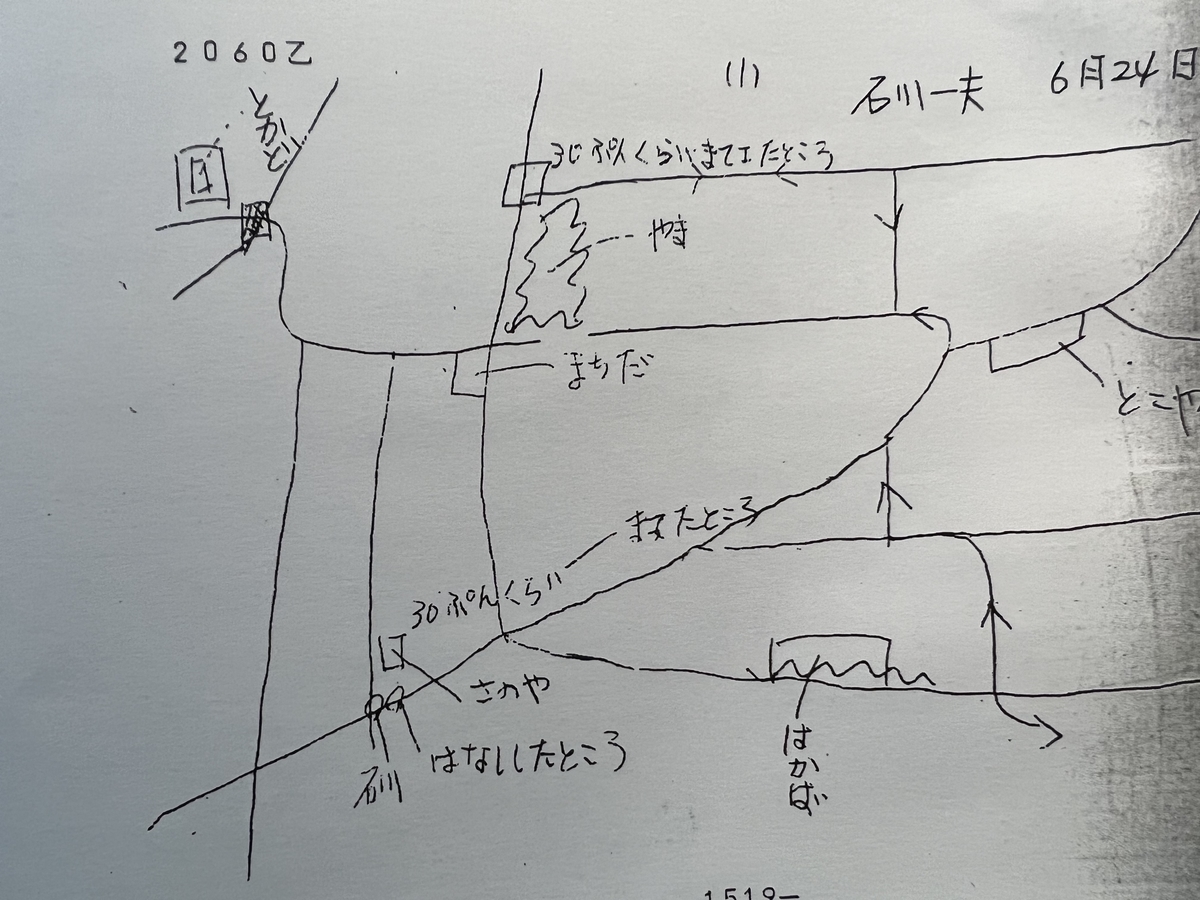 2060乙
(1)
石川一夫 6月24日
とかど
30ぷんくらいまてエたところ
やま
まちだ
とこや
まてたところ
30ぷんくらい
さのや
はなししたところ
石川
はかば
1519—